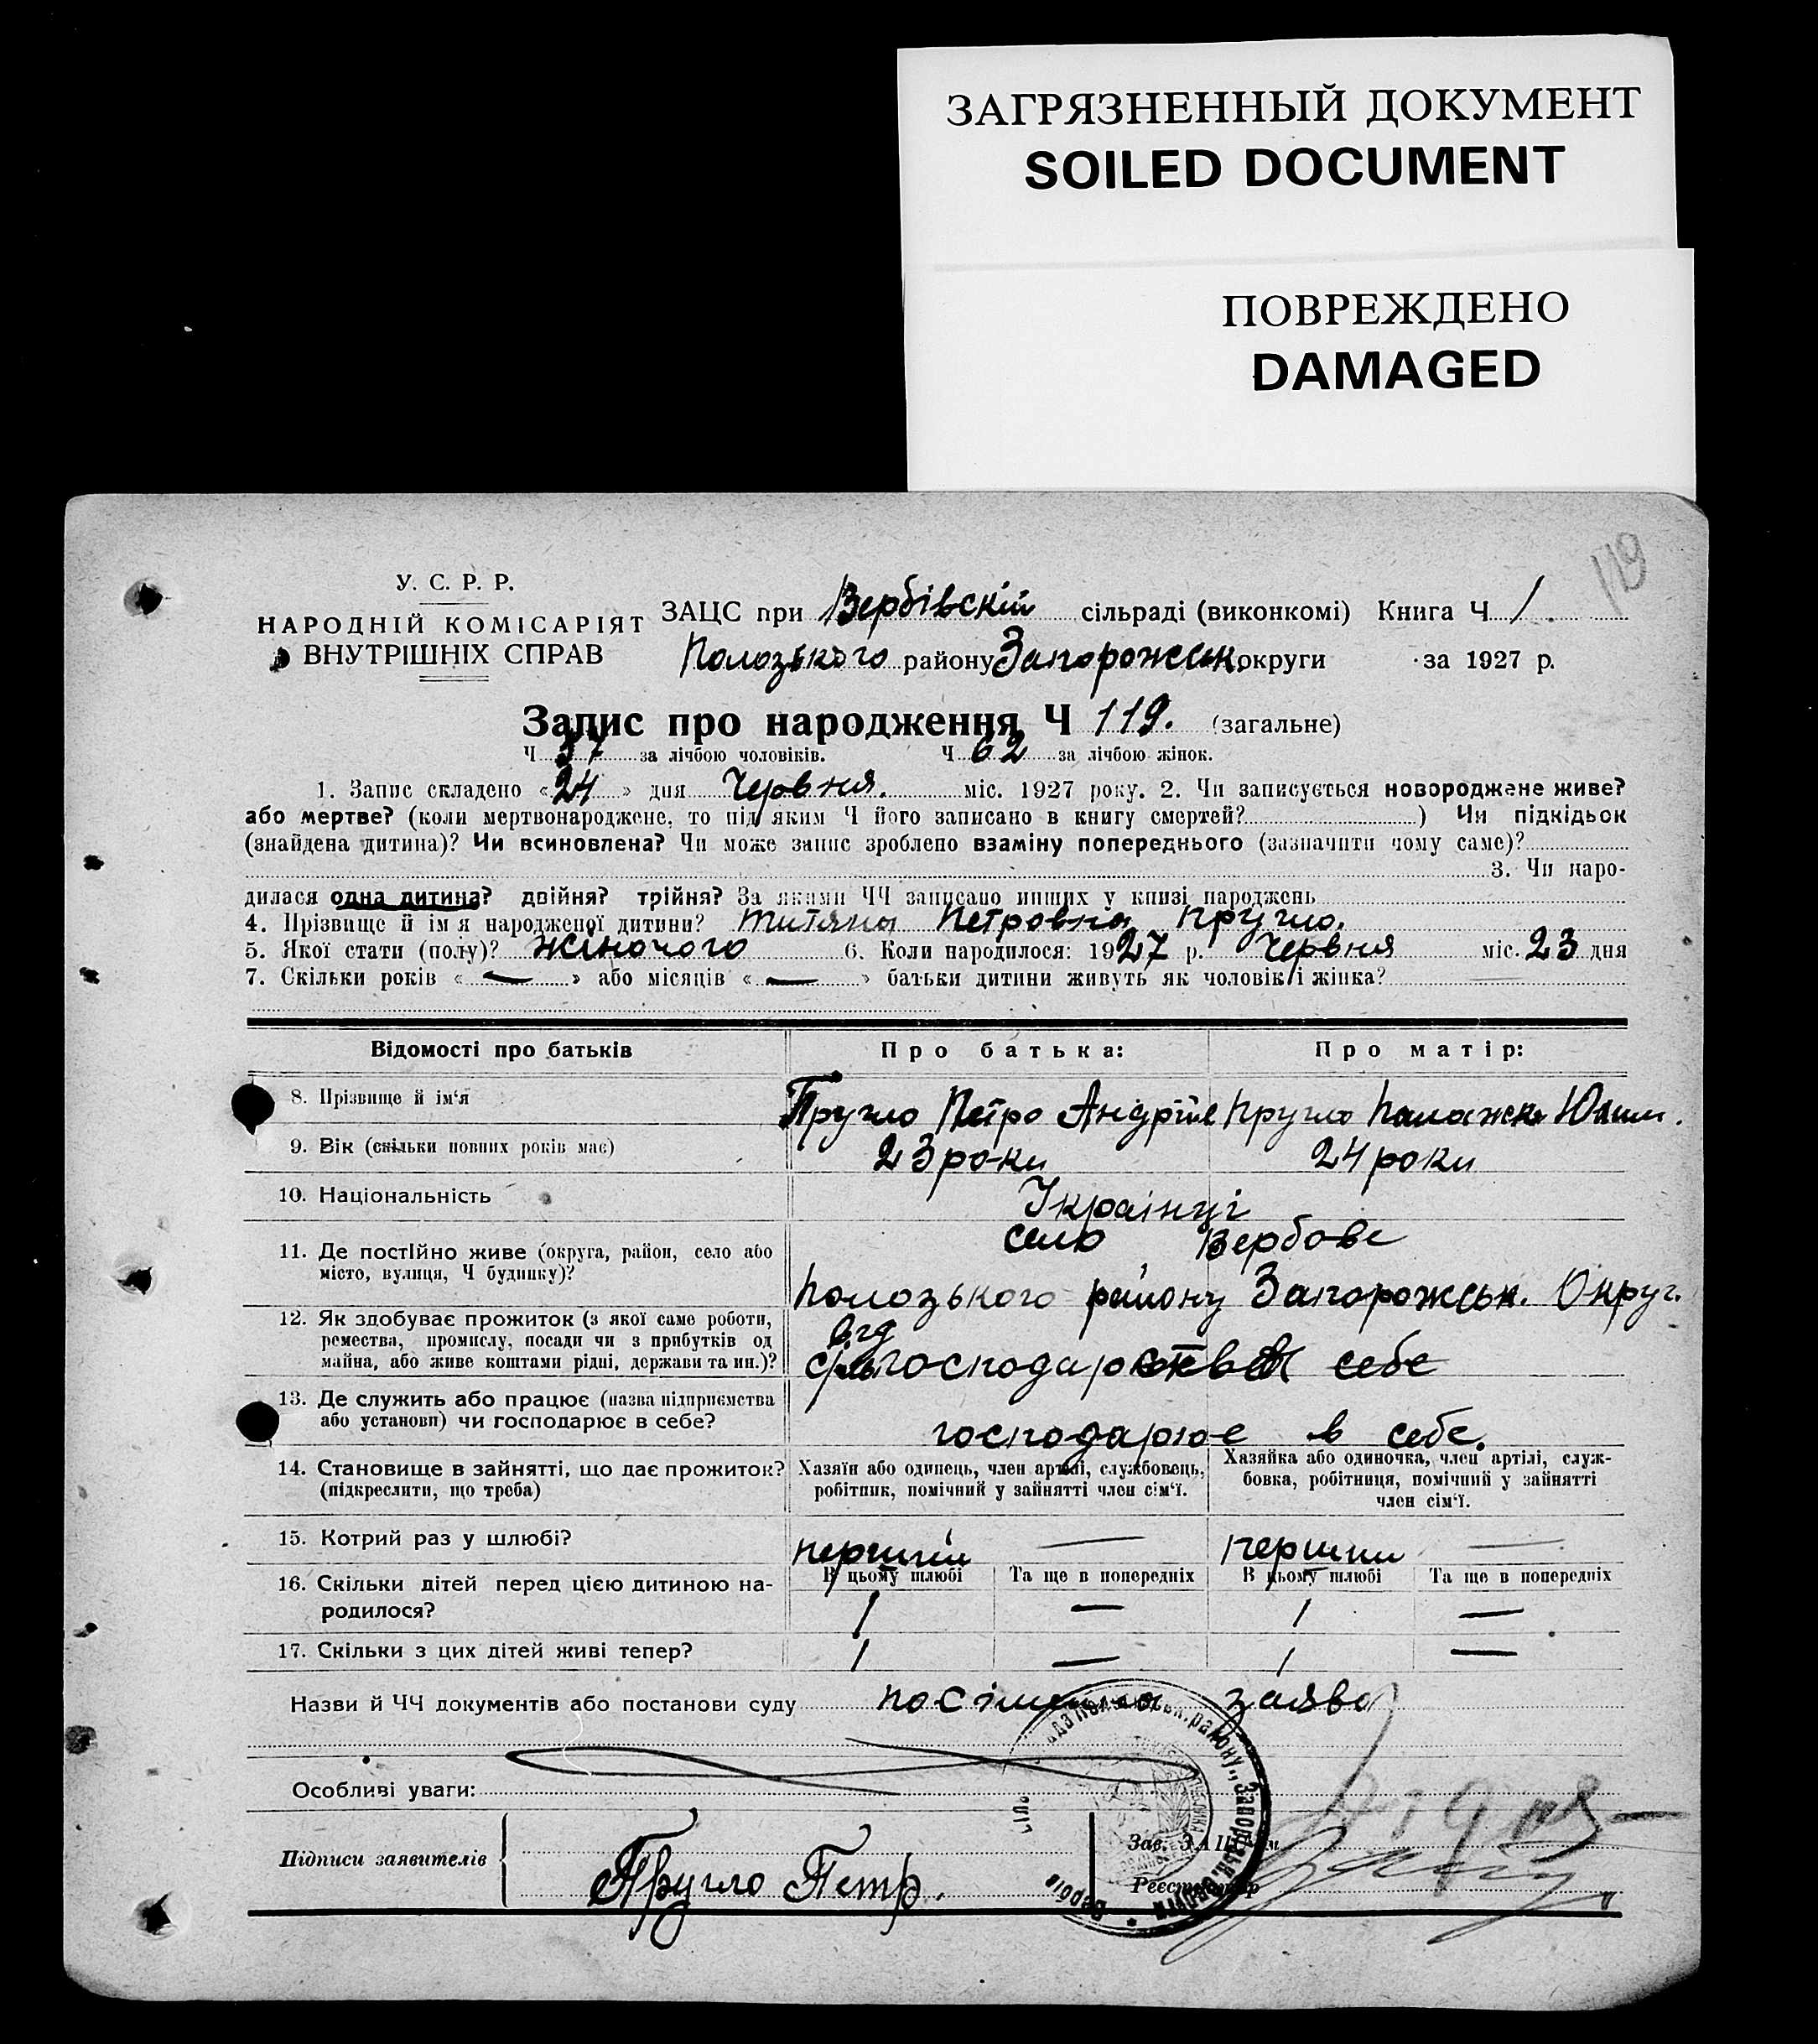 ЗАГРЯЗНЕННЫЙ ДОКУМЕНТ
SOILED DOCUMENT
ПОВРЕЖДЕНО
DAMAGED
119
У. С. Р. Р.
НАРОДНІЙ КОМІСАРІЯТ
ВНУТРІШНІХ СПРАВ
ЗАЦС при Вербівскій сільраді (виконкомі) Книга Ч 1
Полозького району Запорожськ. округи за 1927 р.
Запис про народження Ч 119. (загальне)
Ч 57 за лічбою чоловіків. Ч 62 за лічбою жінок.
1. Запис складено «24» дня Червня. міс. 1927 року. 2. Чи записується новороджене живе?
або мертве? (коли мертвонароджене, то під яким Ч його записано в книгу смертей? ) Чи підкідьок
(знайдена дитина)? Чи всиновлена? Чи може запис зроблено взаміну попереднього (зазначити чому саме)?
3. Чи наро-
дилася одна дитина? двійня? трійня? За якими ЧЧ записано инших у книзі народжень
4. Прізвище й імя народженої дитини? Титяна Петровна Пругло.
5. Якої стати (полу)? Жіночого 6. Коли народилося: 1927 р. Червня міс. 23 дня
7. Скільки років « — » або місяців « — » батьки дитини живуть як чоловік і жінка?
Відомості про батьків Про батька: Про матір:
8. Прізвище й ім'я Пругло Петро Андріїв Пругло Палажка Юхим.
9. Вік (скільки повних років має) 23 роки 24 роки
10. Національність Українці
село Вербове
11. Де постійно живе (округа, район, село або
місто, вулиця, Ч будинку)? Полозького району Запорожськ. Округ.
12. Як здобуває прожиток (з якої саме роботи,
ремества, промислу, посади чи з прибутків од
майна, або живе коштами рідні, держави та ин.)? від сільгосподарства себе
13. Де служить або працює (назва підприємства
або установи) чи господарює в себе? господарює в себе.
14. Становище в зайнятті, що дає прожиток?
(підкреслити, що треба)
Хазяїн або одинець, член артілі, службовець,
робітник, помічний у зайнятті член сім'ї.
Хазяйка або одиночка, член артілі, служ-
бовка, робітниця, помічний у зайнятті
член сім'ї.
15. Котрий раз у шлюбі? перший — перший —
В цьому шлюбі Та ще в попередніх В цьому шлюбі Та ще в попередніх
16. Скільки дітей перед цією дитиною на-
родилося? 1 — 1 —
17. Скільки з цих дітей живі тепер? 1 — 1 —
Назви й ЧЧ документів або постанови суду посімейна заява
Особливі уваги:
Підписи заявителів Пругло Петр.
Зав. ЗАЦС'ом
Реєстратор
району, Запорізьк. округи